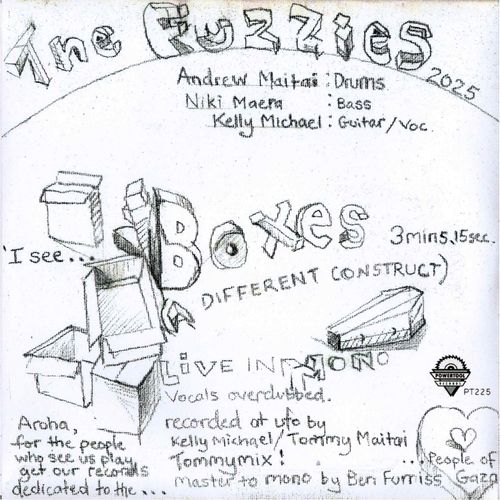 The Fuzzies
2025
Andrew Maitai : Drums
Niki Maera : Bass
Kelly Michael : Guitar/Voc.
'I see... Boxes
3mins.15sec.
(A DIFFERENT CONSTRUCT)
LIVE IN MONO
Vocals overdubbed.
recorded at ufo by
Kelly Michael/Tommy Maitai
Tommymix!
master to mono by Ben Furniss
POWERTOOL
PT225
Aroha,
for the people
who see us play,
get our records
dedicated to the...
...People of
Gaza